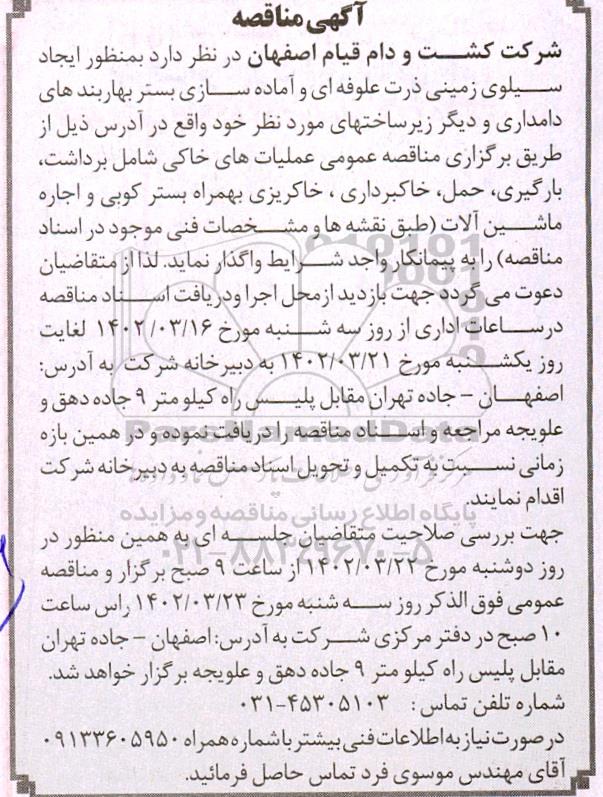 آگهی مناقصه
شرکت کشت و دام قیام اصفهان در نظر دارد بمنظور ایجاد
سیلوی زمینی ذرت علوفه ای و آماده سازی بستر بهاربند های
دامداری و دیگر زیرساختهای مورد نظر خود واقع در آدرس ذیل از
طریق برگزاری مناقصه عمومی عملیات های خاکی شامل برداشت،
بارگیری، حمل، خاکبرداری ، خاکریزی بهمراه بستر کوبی و اجاره
ماشین آلات (طبق نقشه ها و مشخصات فنی موجود در اسناد
مناقصه) را به پیمانکار واجد شرایط واگذار نماید. لذا از متقاضیان
دعوت می گردد جهت بازدید از محل اجرا ودریافت اسناد مناقصه
درساعات اداری از روز سه شنبه مورخ ۱۴۰۲/۰۳/۱۶ لغایت
روز یکشنبه مورخ ۱۴۰۲/۰۳/۲۱ به دبیرخانه شرکت به آدرس:
اصفهان - جاده تهران مقابل پلیس راه کیلو متر ۹ جاده دهق و
علویجه مراجعه و اسناد مناقصه را دریافت نموده و در همین بازه
زمانی نسبت به تکمیل و تحویل اسناد مناقصه به دبیرخانه شرکت
اقدام نمایند.
جهت بررسی صلاحیت متقاضیان جلسه ای به همین منظور در
روز دوشنبه مورخ ۱۴۰۲/۰۳/۲۲ از ساعت ۹ صبح برگزار و مناقصه
عمومی فوق الذکر روز سه شنبه مورخ ۱۴۰۲/۰۳/۲۳ راس ساعت
۱۰ صبح در دفتر مرکزی شرکت به آدرس: اصفهان - جاده تهران
مقابل پلیس راه کیلو متر ۹ جاده دهق و علویجه برگزار خواهد شد.
شماره تلفن تماس : ۰۳۱-۴۵۳۰۵۱۰۳
در صورت نیاز به اطلاعات فنی بیشتر با شماره همراه ۰۹۱۳۳۶۰۵۹۵۰
آقای مهندس موسوی فرد تماس حاصل فرمائید.
ParsNamadData
پایگاه اطلاع رسانی مناقصه و مزایده
۰۲۱-۸۸۳۴۹۶۷۰-۵